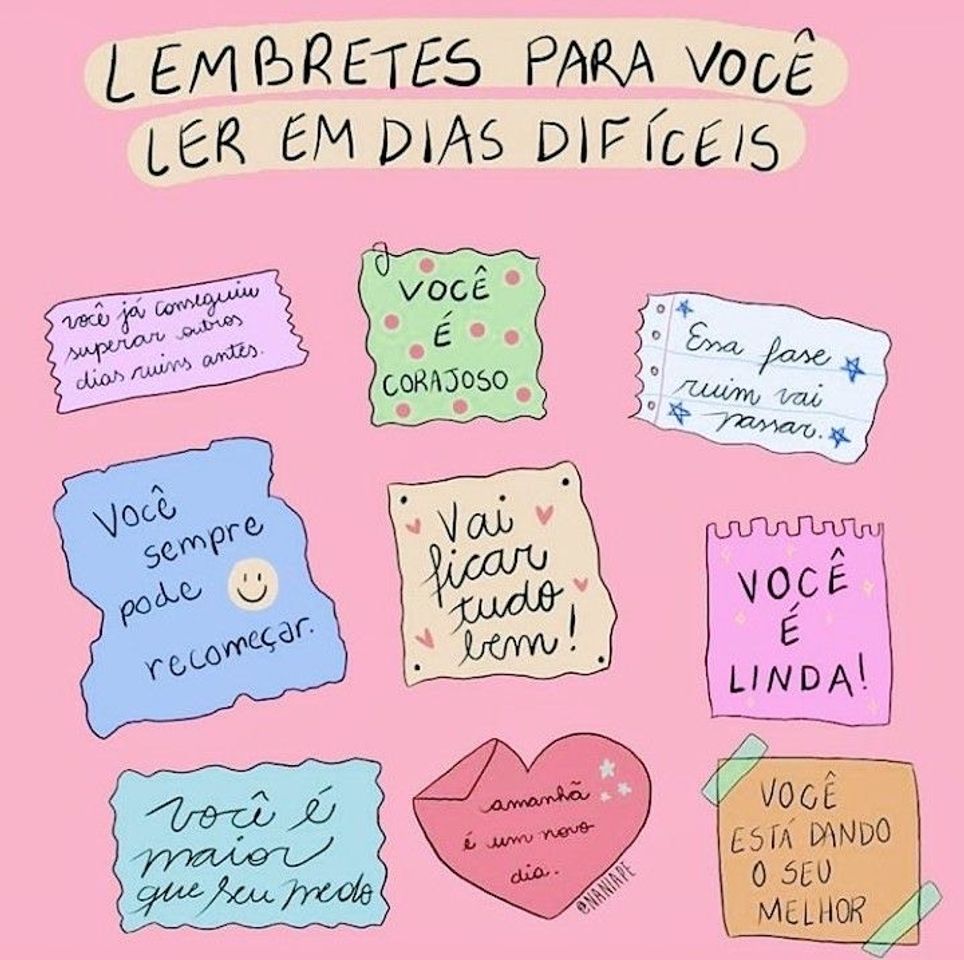 LEMBRETES PARA VOCÊ
LER EM DIAS DIFÍCEIS
você já conseguiu
superar outros
dias ruins antes.
VOCÊ
É
CORAJOSO
Essa fase
ruim vai
passar.
Você
sempre
pode
recomeçar.
Vai
ficar
tudo
bem!
VOCÊ
É
LINDA!
você é
maior
que seu medo
amanhã
é um novo
dia.
@NANIAPE
VOCÊ
ESTÁ DANDO
O SEU
MELHOR